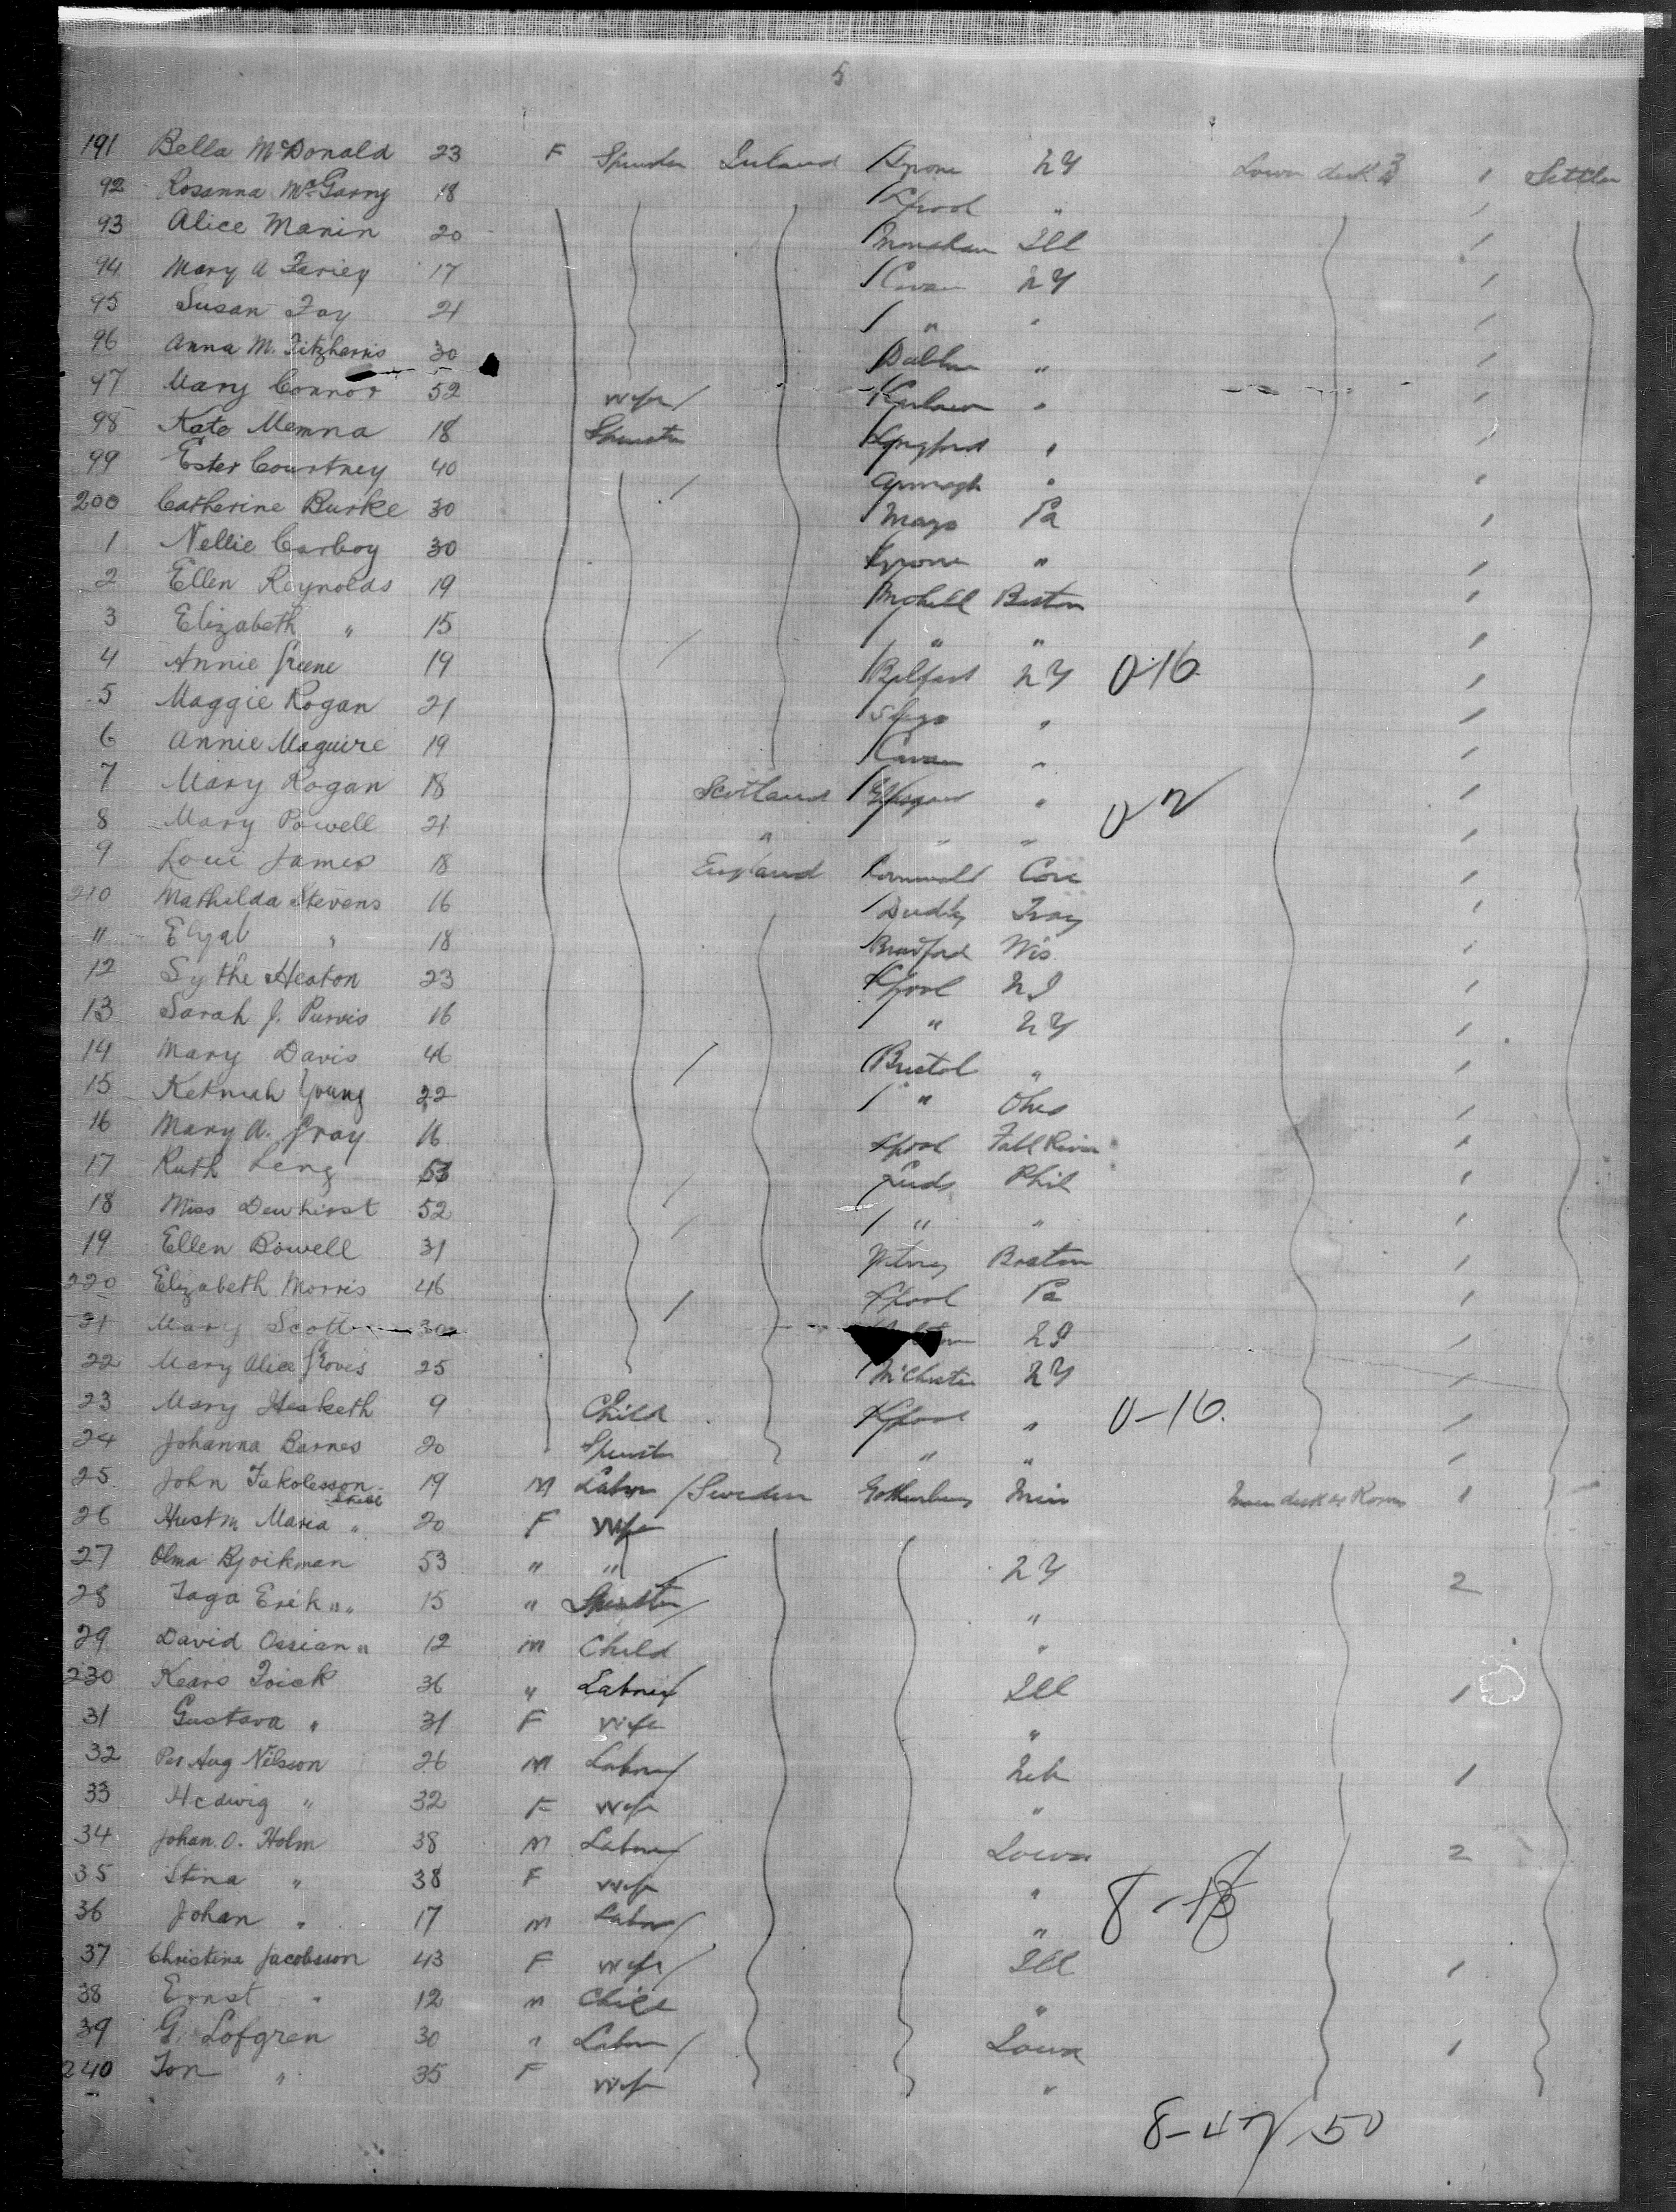 5
191 Bella McDonald 23 F Spinster Ireland Tyrone NY Lower deck 3 1 Settler
92 Rosanna McGarry 18 L'pool " 1
93 Alice Manin 20 Monahan Ill 1
94 Mary A Fariey 17 Cavan NY 1
95 Susan Fay 21 " " 1
96 Anna M. Fitzharris 30 Dublin " 1
97 Mary Connor 52 Wife Karlow " 1
98 Kate Memna 18 Spinster Longford " 1
99 Ester Courtney 40 Armagh " 1
200 Catherine Burke 30 Mayo Pa 1
1 Nellie Carboy 30 Tyrone " 1
2 Ellen Reynolds 19 Mohill Boston 1
3 Elizabeth " 15 " " 1
4 Annie Greene 19 Belfast NY 0-16 1
5 Maggie Rogan 21 Sligo " 1
6 Annie Maguire 19 Cavan " 1
7 Mary Rogan 18 Scotland Glasgow " 1
8 Mary Powell 21 " " " 1
9 Loui James 18 England Cornwall 1
210 Mathilda Stevens 16 Dudley Troy 1
11 " 18 Bradford Wis 1
12 Sythe Heaton 23 L'pool NJ 1
13 Sarah J. Purvis 16 " NY 1
14 Mary Davis 46 Bristol " 1
15 Young 22 " Ohio 1
16 Mary A. Gray 16 L'pool Fall River 1
17 Ruth Leng 53 Leeds Phil 1
18 Miss Dewhirst 52 " " 1
19 Ellen Bowell 31 Witney Boston 1
220 Elizabeth Morris 46 L'pool Pa 1
21 Mary Scott 30 1
22 Mary Alice Groves 25 M'Chester NY 1
23 Mary Hesketh 9 Child L'pool " 0-16. 1
24 Johanna Barnes 20 Spinster " " 1
25 John Jakolesson 19 M Labor Sweden Gothenburg Min Main deck Room 1
26 Maria " 20 F Wife
27 Olma Bjorkman 53 " " NY 2
28 Taga Erik " " 15 " Spinster "
29 David Ossian " 12 M Child "
230 Frick 36 " Laborer Ill 1
31 Gustava " 31 F Wife "
32 Per Aug Nilsson 26 M Laborer Neb 1
33 Hedwig " 32 F Wife "
34 Johan. O. Holm 38 M Laborer Iowa 2
35 Stina " 38 F Wife " 8-18
36 Johan " 17 M Labor "
37 Christina Jacobsson 43 F Wife Ill 1
38 Ernst " 12 M Child "
39 G. Lofgren 30 " Labor Iowa 1
240 Jon " 35 F Wife "
8-47/50